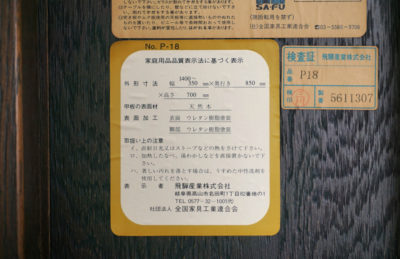 SA-FU
(無断転用を禁ず)
(社)全国家具工業連合会
No. P-18
家庭用品品質表示法に基づく表示
1400
外形寸法 幅 350 mm×奥行き 850 mm
×高さ 700 mm
甲板の表面材 天然木
表面加工 表面 ウレタン樹脂塗装
脚部 ウレタン樹脂塗装
取扱い上の注意
イ. 直射日光又はストーブなどの熱をさけて下さい。
ロ. 加熱したなべ、湯わかしなどを直接置かないで下さい。
ハ. 著しい汚れを落とす場合は、うすめた中性洗剤を使用してください。
表示者 飛騨産業株式会社
岐阜県高山市名田町1丁目82番地の1
TEL 0577-32-1001代
社団法人 全国家具工業連合会
検査証
飛騨産業株式会社
品番 P18
検印
製番 5611307